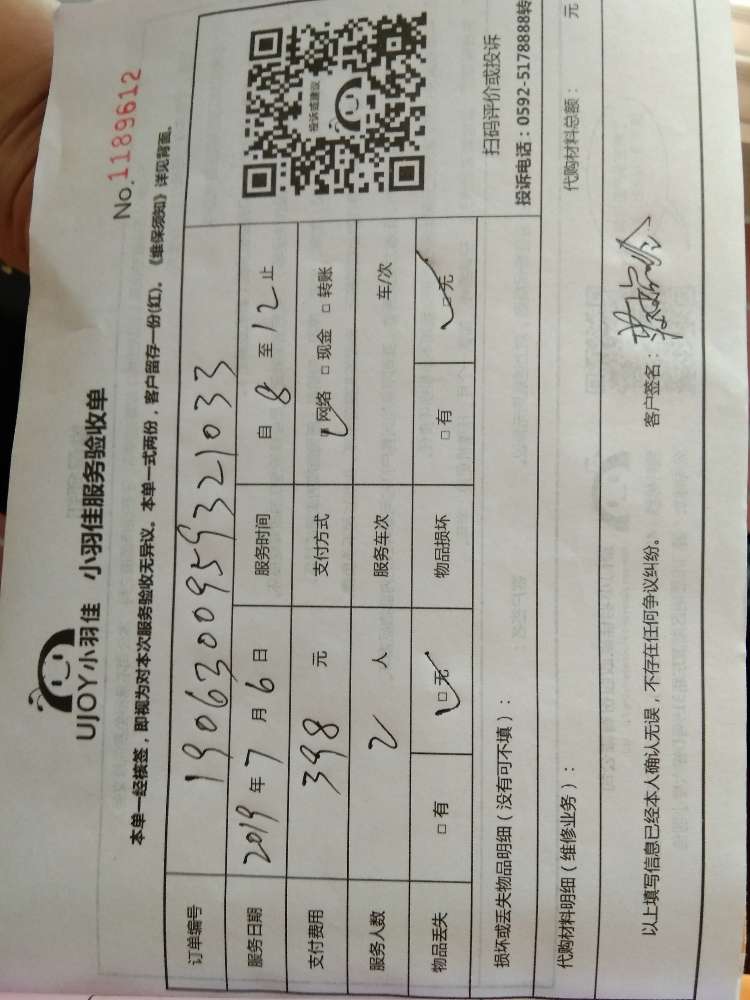 UJOY小羽佳 小羽佳服务验收单
No.1189612
本单一经核签，即视为对本次服务验收无异议。本单一式两份，客户留存一份(红)。《维保须知》详见背面。
订单编号 1906300959321033
服务日期 2019年7月6日 服务时间 自8至12止
支付费用 398元 支付方式 ☑网络 □现金 □转账
服务人数 2人 服务车次 车/次
物品丢失 □有 ☑无 物品损坏 □有 ☑无
投诉或建议
扫码评价或投诉
投诉电话：0592-5178888转
损坏或丢失物品明细（没有可不填）：
代购材料明细（维修业务）： 代购材料总额： 元
以上填写信息已经本人确认无误，不存在任何争议纠纷。 客户签名：